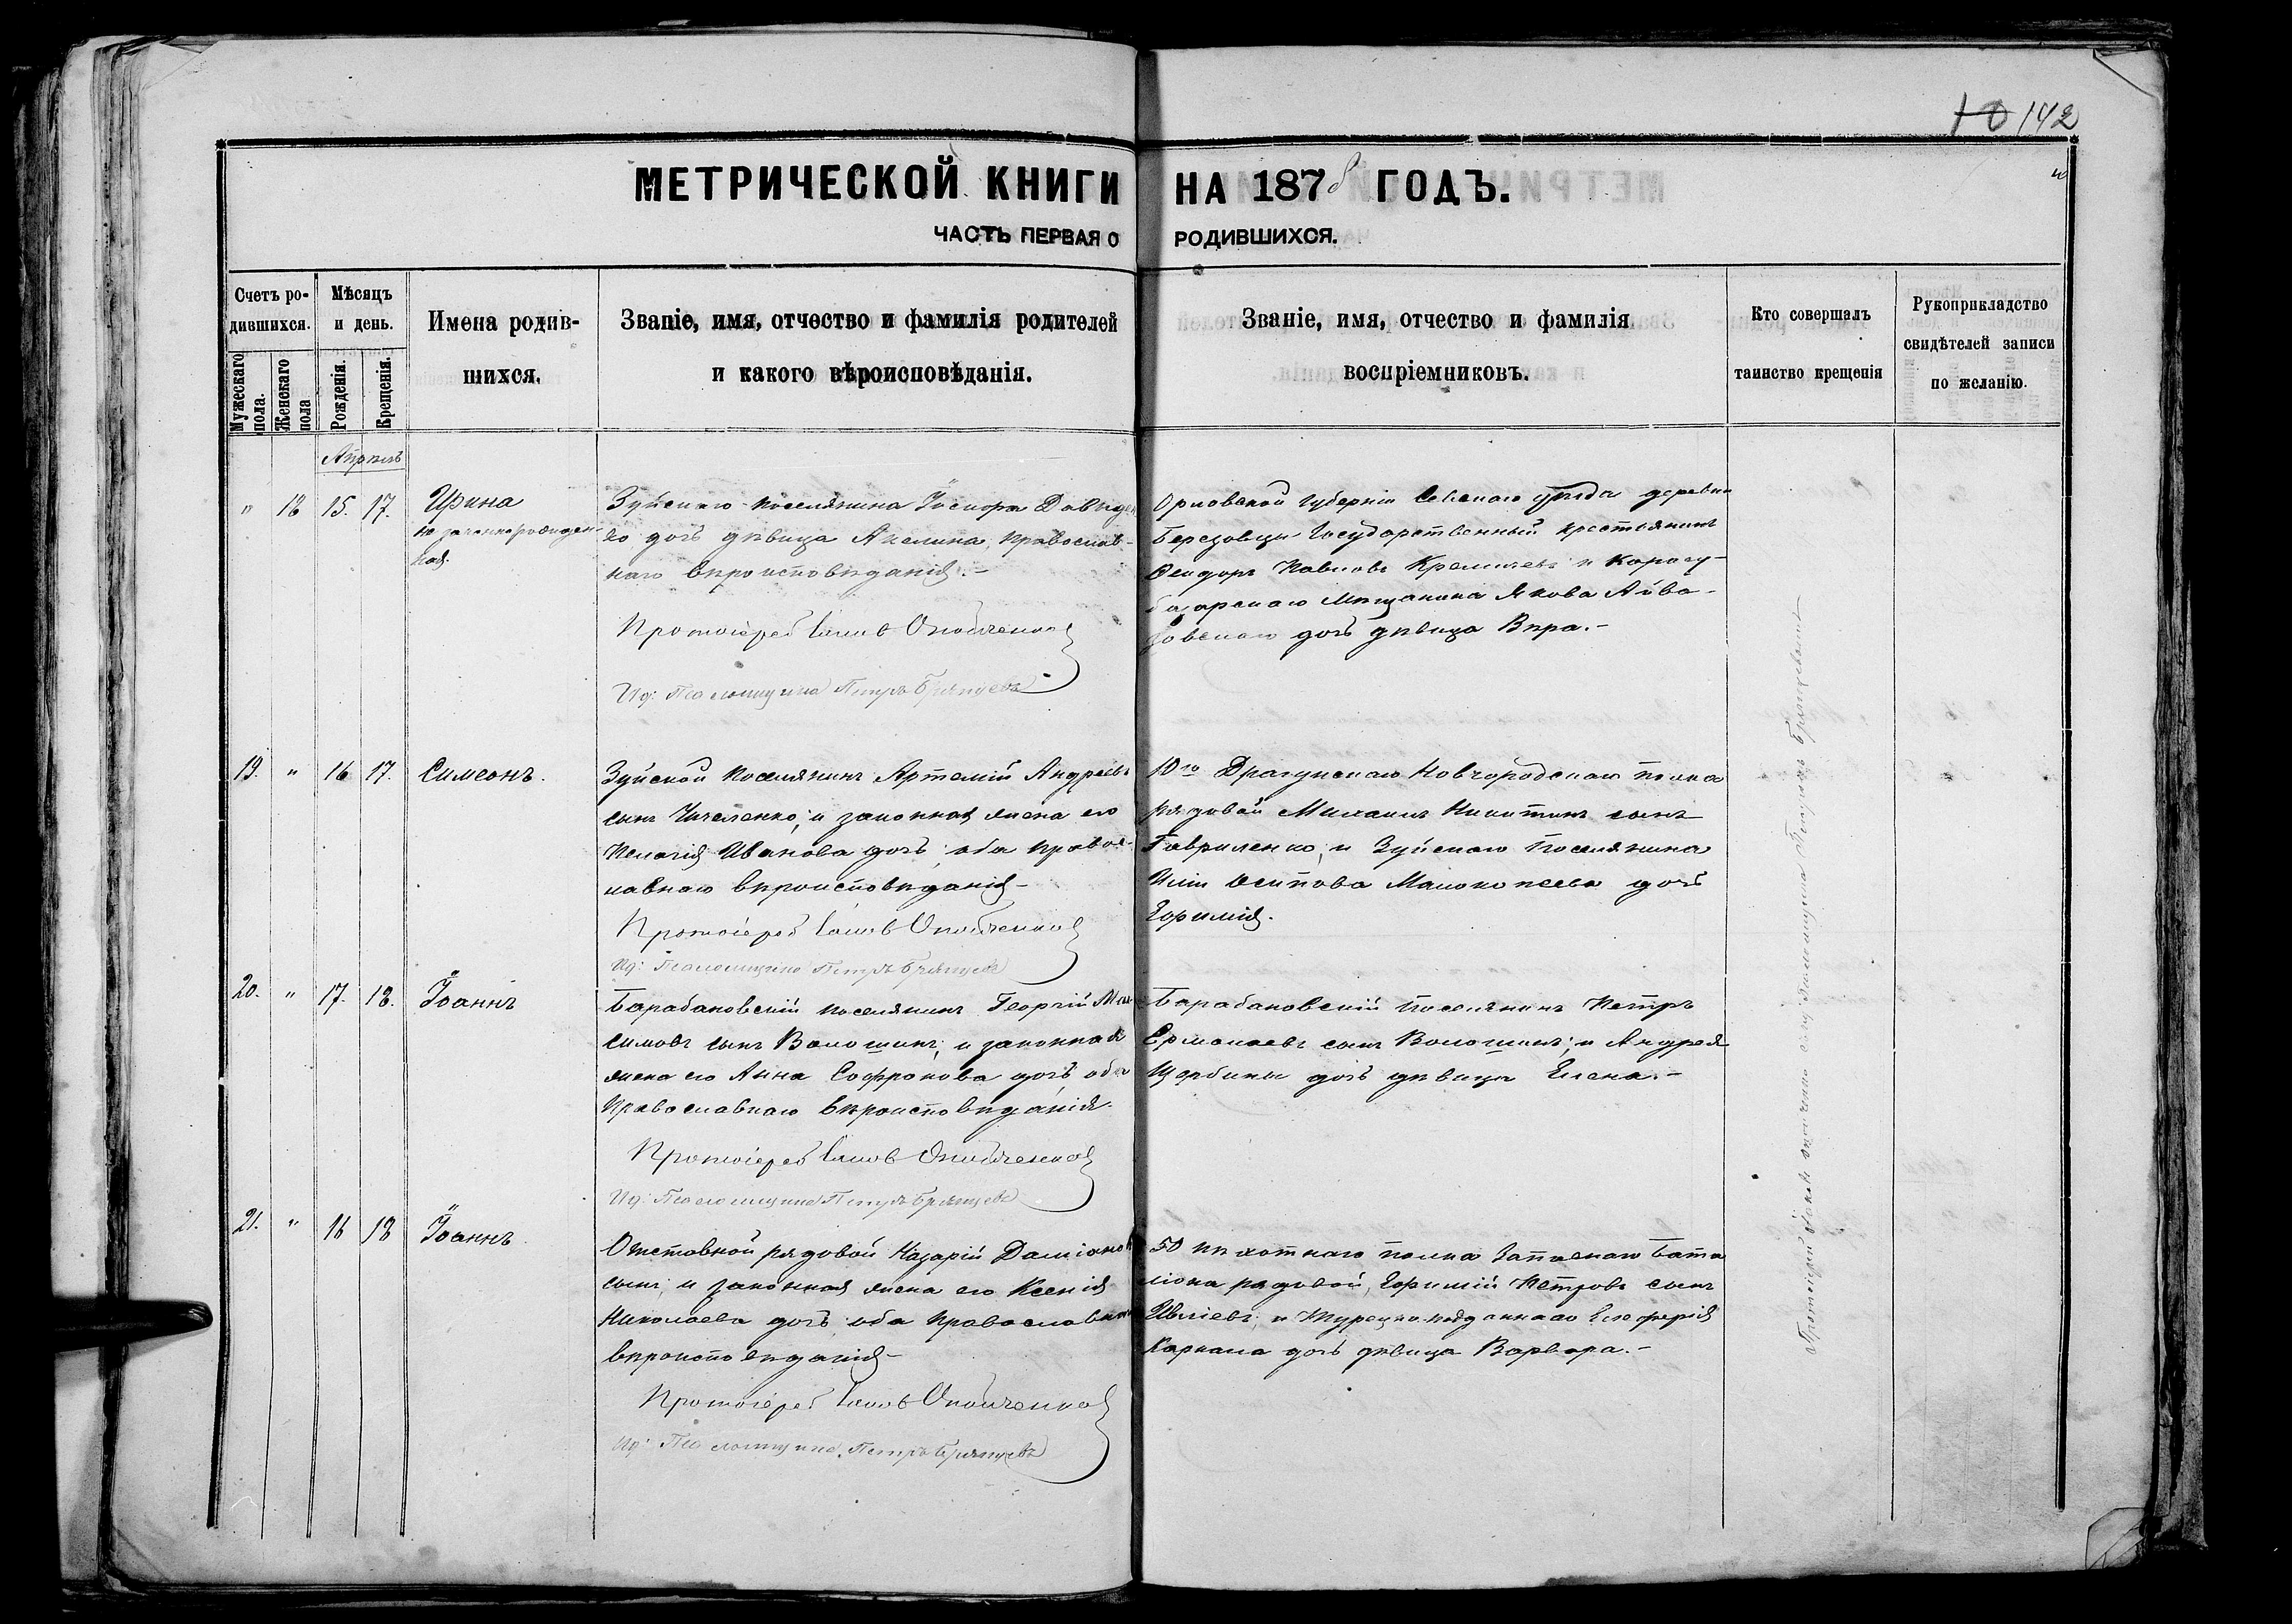 10 142
МЕТРИЧЕСКОЙ КНИГИ НА 1878 ГОДЪ.
ЧАСТЬ ПЕРВАЯ О РОДИВШИХСЯ.
Счетъ ро-
дившихся.
Мужескаго
пола.
Женскаго
пола
Мѣсяцъ
и день.
Рожденія.
Крещенія.
Имена родив-
шихся.
Званіе, имя, отчество и фамилія родителей
и какого вѣроисповѣданія.
Званіе, имя, отчество и фамилія
воспріемниковъ.
Кто совершалъ
таинство крещенія
Рукоприкладство
свидѣтелей записи
по желанію.
Апрель
" 18 15. 17. Ирина
незаконнорожден-
ная.
Зуйскаго поселянина Іосифа Давиден
ко дочь дѣвица Акилина, православ-
наго вѣроисповѣданія.-
Протоіерей Іаковъ Онойченко
Ид: Псаломщика Петръ Брянцевъ
Орловской губерніи Севскаго уѣзда деревни
Березовцы Государственный крестьянинъ
Феодоръ Павловъ и Карасу-
базарскаго Мѣщанина Якова Айва-
зовскаго дочь дѣвица Вѣра.-
19. " 16 17. Симеонъ.
Зуйской поселянинъ Артемій Андреевъ
сынъ Чичеленко, и законная жена его
Пелагія Иванова дочь, оба Правос-
лавнаго вѣроисповѣданія-
Протоіерей Іаковъ Онойченко
Ид: Псаломщика Петръ Брянцевъ
10го Драгунскаго Новгородскаго полка
рядовой Михаилъ Никитинъ сынъ
Гавриленко, и Зуйскаго поселянина
Иліи Осипова дочь
Евфимія.
20. " 17. 18. Іоаннъ
Барабановскій поселянинъ Георгій Мак
симовъ сынъ Волошинъ, и законная
жена его Анна Софронова дочь, оба
Православнаго вѣроисповѣданія.
Протоіерей Іаковъ Онойченко
Ид: Псаломщика Петръ Брянцевъ
Барабановскій поселянинъ Петръ
Ермолаевъ сынъ Волошинъ, и Андрея
Щербины дочь дѣвица Елена.-
21. " 16 18 Іоаннъ
Отставной рядовой Назарій Даміановъ
сынъ, и законная жена его Ксенія
Николаева дочь, оба Православнаго
вѣроисповѣданія-
Протоіерей Іаковъ Онойченко
Ид: Псаломщика Петръ Брянцевъ
50 пѣхотнаго полка запаснаго бата
ліона рядовой, Евфимій Петровъ сынъ
и Турецко-подданнаго Елевферія
дочь дѣвица Варвара.-
Протоіерей Іаковъ Онойченко съ псаломщикомъ Петромъ Брянцевымъ